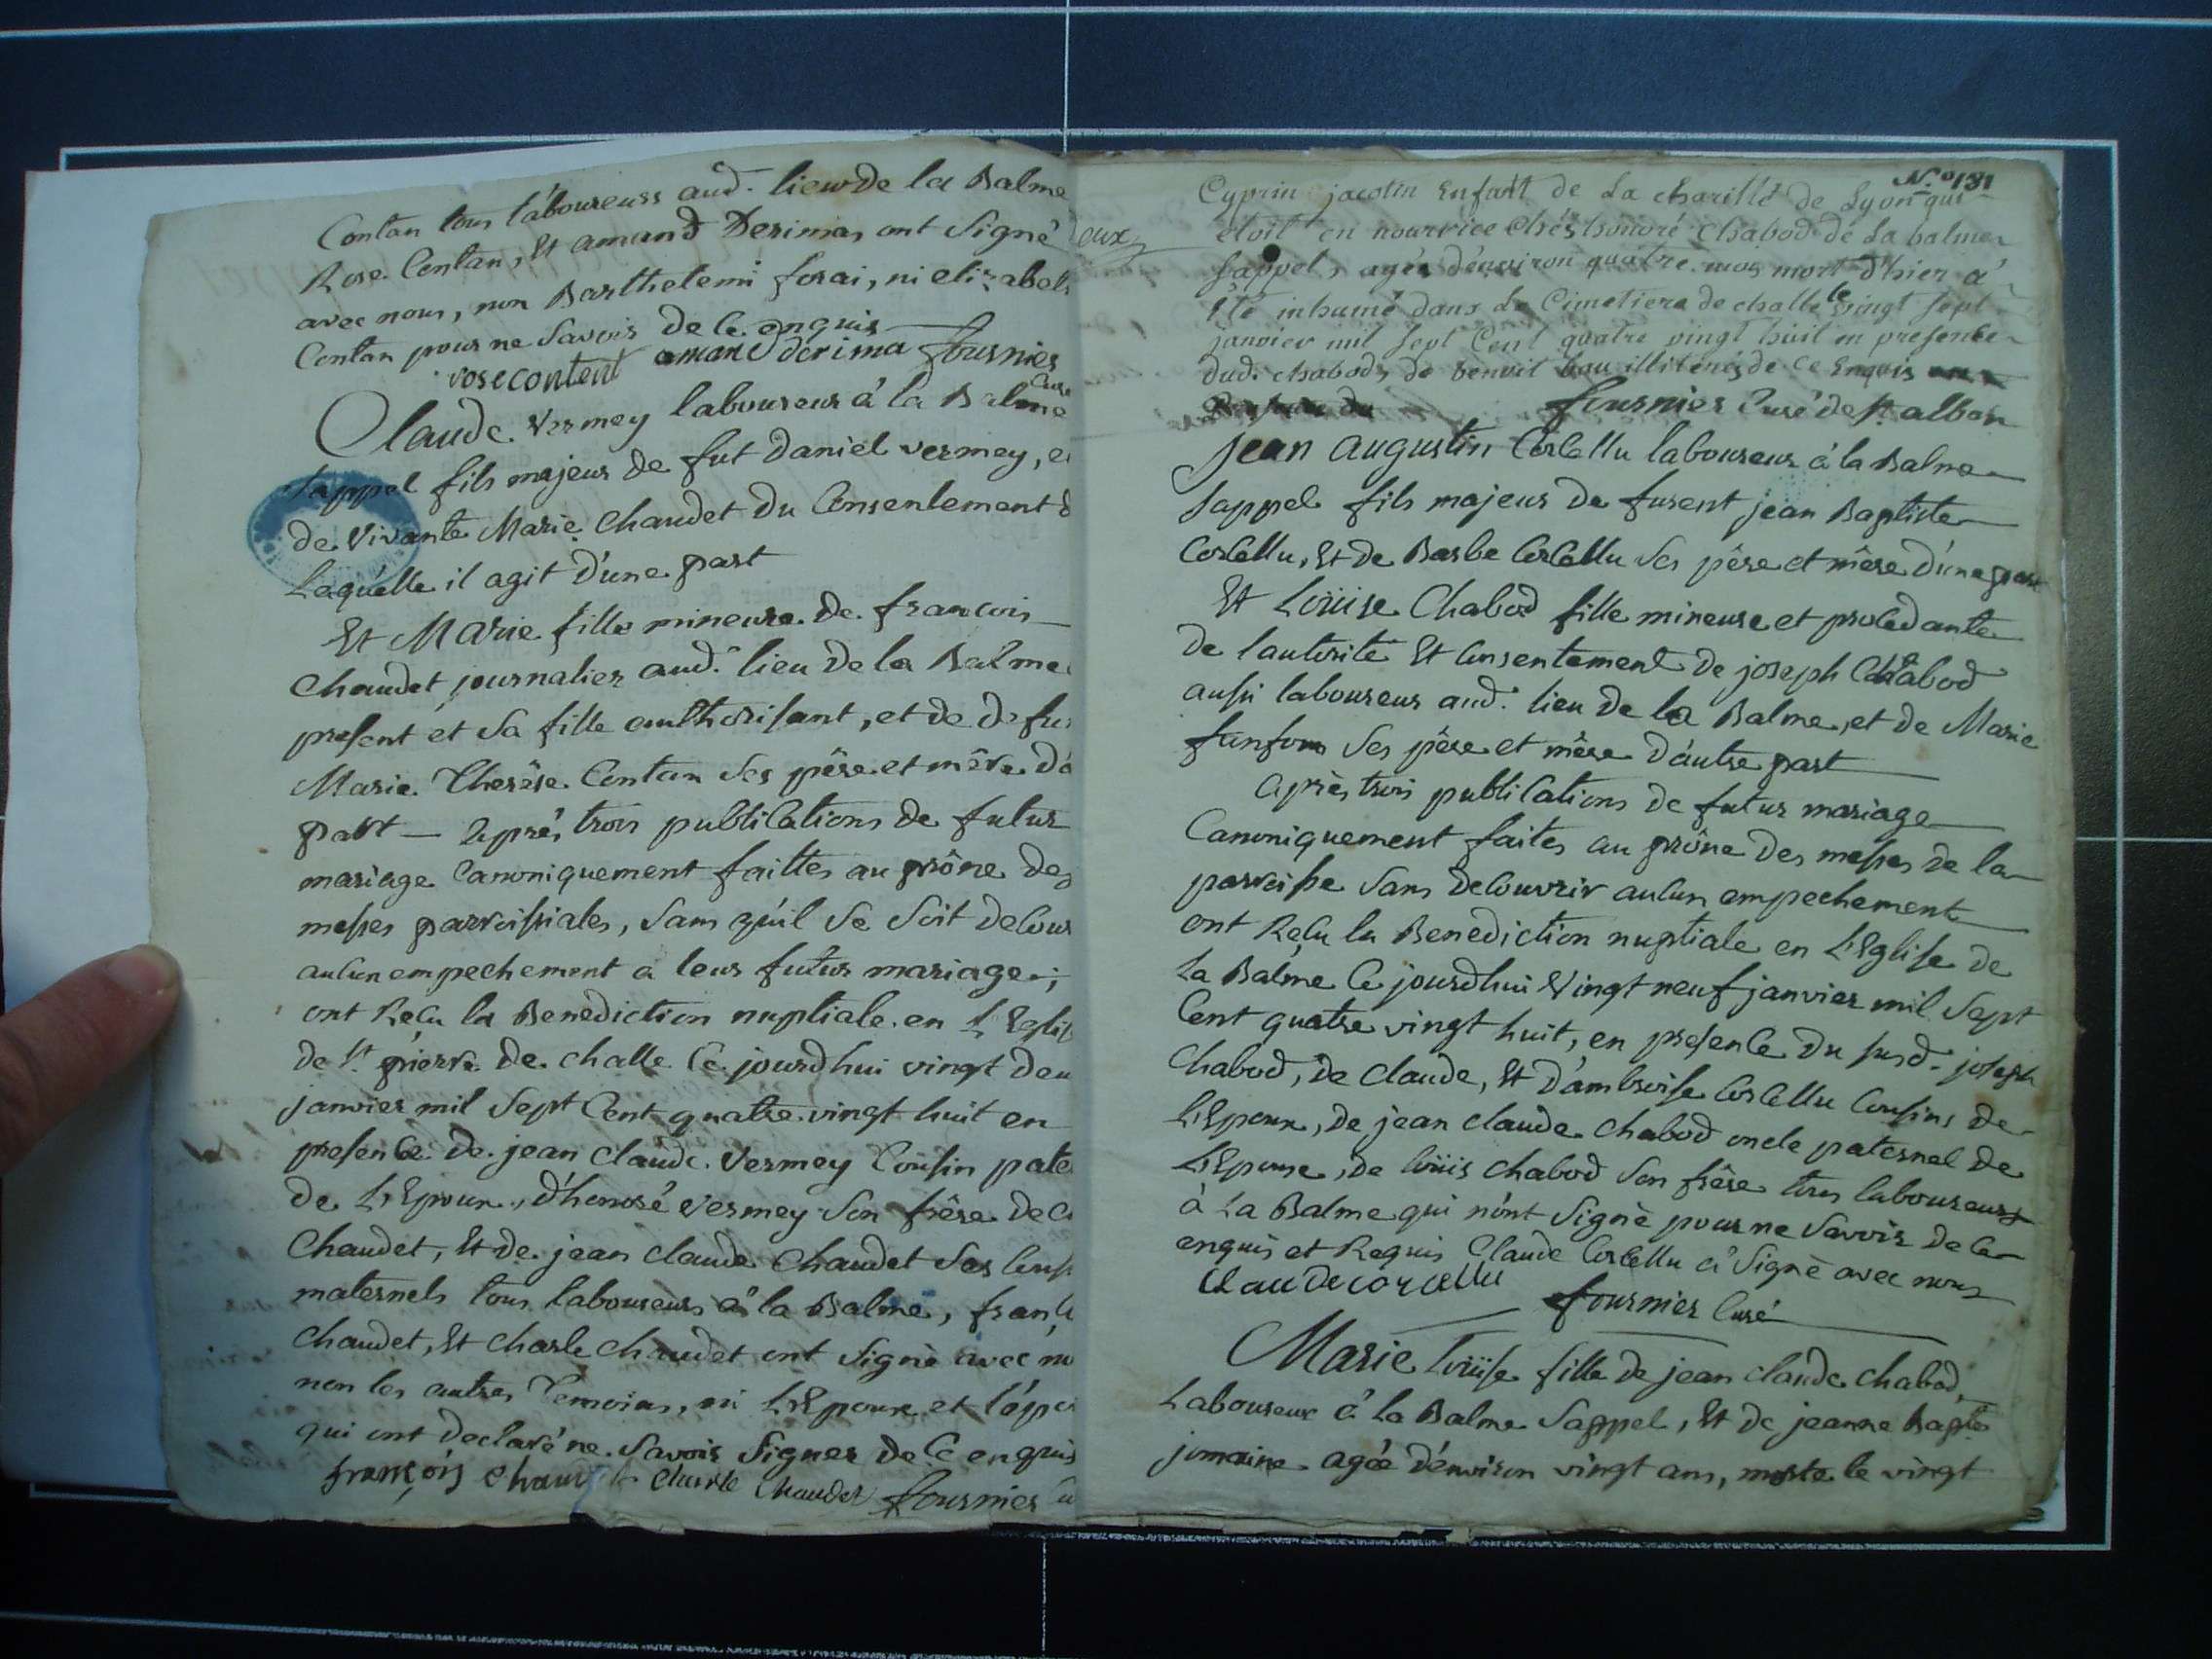 Contan tous laboureurs aud. lieu de la Balme
Rose Contan, Et amand Derimas ont signé
avec nous, non Barthelemi forai, ni elizabeth
Contan pour ne savoir de ce enquis
rose contant amand derima fournier
Curé
Claude Vermey laboureur à la Balme
sappel fils majeur de fut Daniel vermey, et
de vivante Marie Chaudet du Consentement d
Laquelle il agit d'une part
Et Marie fille mineure de francois
Chaudet journalier aud. lieu de la Balme
present et sa fille authorisant, et de defu
Marie Therèse Contan ses père et mère d'a
part — après trois publications de futur
mariage Canoniquement faittes au prône des
messes parroissiales, sans qu'il se soit decouv
aucun empechement a leur futur mariage;
ont Reçu la Benediction nuptiale en L'Eglis
de St pierre de challe Ce jourdhui vingt deu
janvier mil sept Cent quatre vingt huit en
presence de jean claude Vermey Cousin pate
de L'Epoux, d'honoré Vermey son frère de c
Chaudet, Et de jean claude Chaudet ses Cous
maternels tous laboureurs à la Balme, franc
Chaudet, Et charle Chaudet ont signé avec no
non les autres Temoins, ni L'Epoux et l'épo
qui ont declaré ne savoir signer de ce enquis
françois Chaud Charle Chaudet fournier cu
N.º 131
Cyprin jacotin Enfant de La charitté de Lyon qui
etoit en nourrice Chés honoré Chabod de La balme
sappel, agée d'environ quatre mois mort d'hier a
été inhumé dans Le Cimetiere de challe le vingt sept
janvier mil sept Cent quatre vingt huit en presence
dud. chabod, de benoit illiterés de Ce Enquis
fournier Curé de St alban
Jean Augustin CorCellu laboureur à la Balme
sappel fils majeur de furent jean Baptiste
CorCellu, Et de Barbe CorCellu ses père et mère d'une part
Et Loüise Chabod fille mineure et procedante
de l'autorité Et Consentement de joseph Chabod
aussi laboureur aud. lieu de la Balme, et de Marie
ses père et mère d'autre part
après trois publications de futur mariage
Canoniquement faites au prône des messes de la
parroisse sans decouvrir aucun empechement
ont Reçu la Benediction nuptiale en L'Eglise de
La Balme Ce jourdhui Vingt neuf janvier mil sept
Cent quatre vingt huit, en presence du susd. joseph
Chabod, de Claude, Et d'ambroise CorCellu Cousins de
L'Epoux, de jean claude Chabod oncle paternel de
L'Epouse, de loüis Chabod son frère tous laboureurs
à La Balme qui n'ont signé pour ne savoir de Ce
enquis et Requis Claude CorCellu a signé avec nous
Claude corcellu
fournier Curé
Marie Loüise fille de jean claude Chabod,
Laboureur à La Balme sappel, Et de jeanne Bapte
jomaine agée d'environ vingt ans, morte le vingt